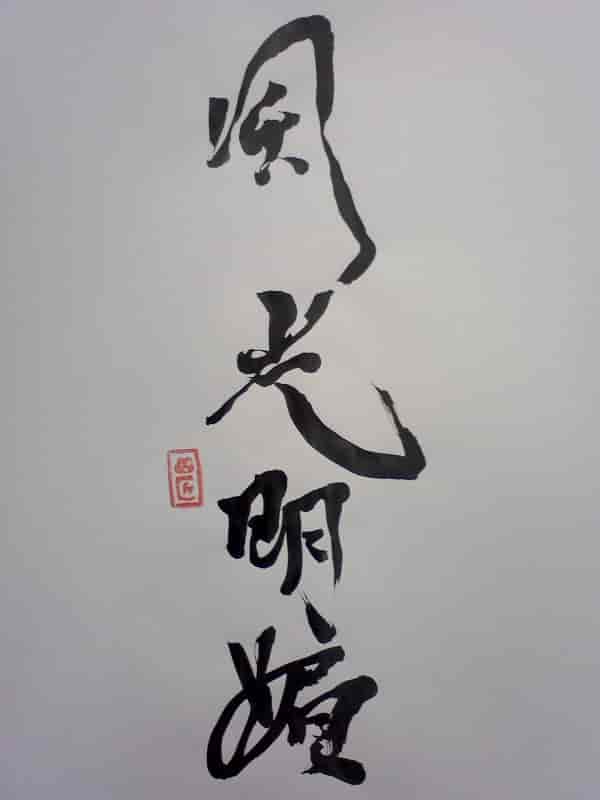 風光明媚